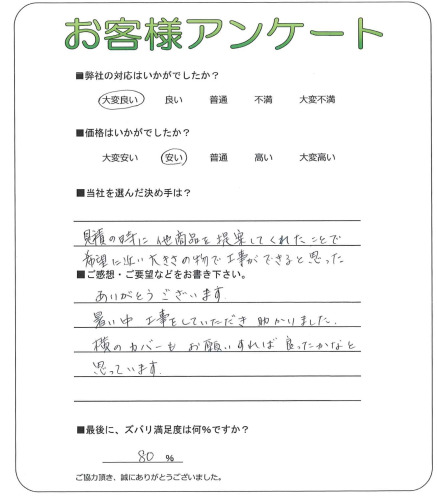 お客様アンケート
■弊社の対応はいかがでしたか？
大変良い 良い 普通 不満 大変不満
■価格はいかがでしたか？
大変安い 安い 普通 高い 大変高い
■当社を選んだ決め手は？
見積の時に他商品を提案してくれたことで
希望に近い大きさの物で工事ができると思った
■ご感想・ご要望などをお書き下さい。
ありがとうございます.
暑い中 工事をしていただき 助かりました.
横のカバーも お願いすれば 良ったかなと
思っています.
■最後に、ズバリ満足度は何%ですか？
80 %
ご協力頂き、誠にありがとうございました。